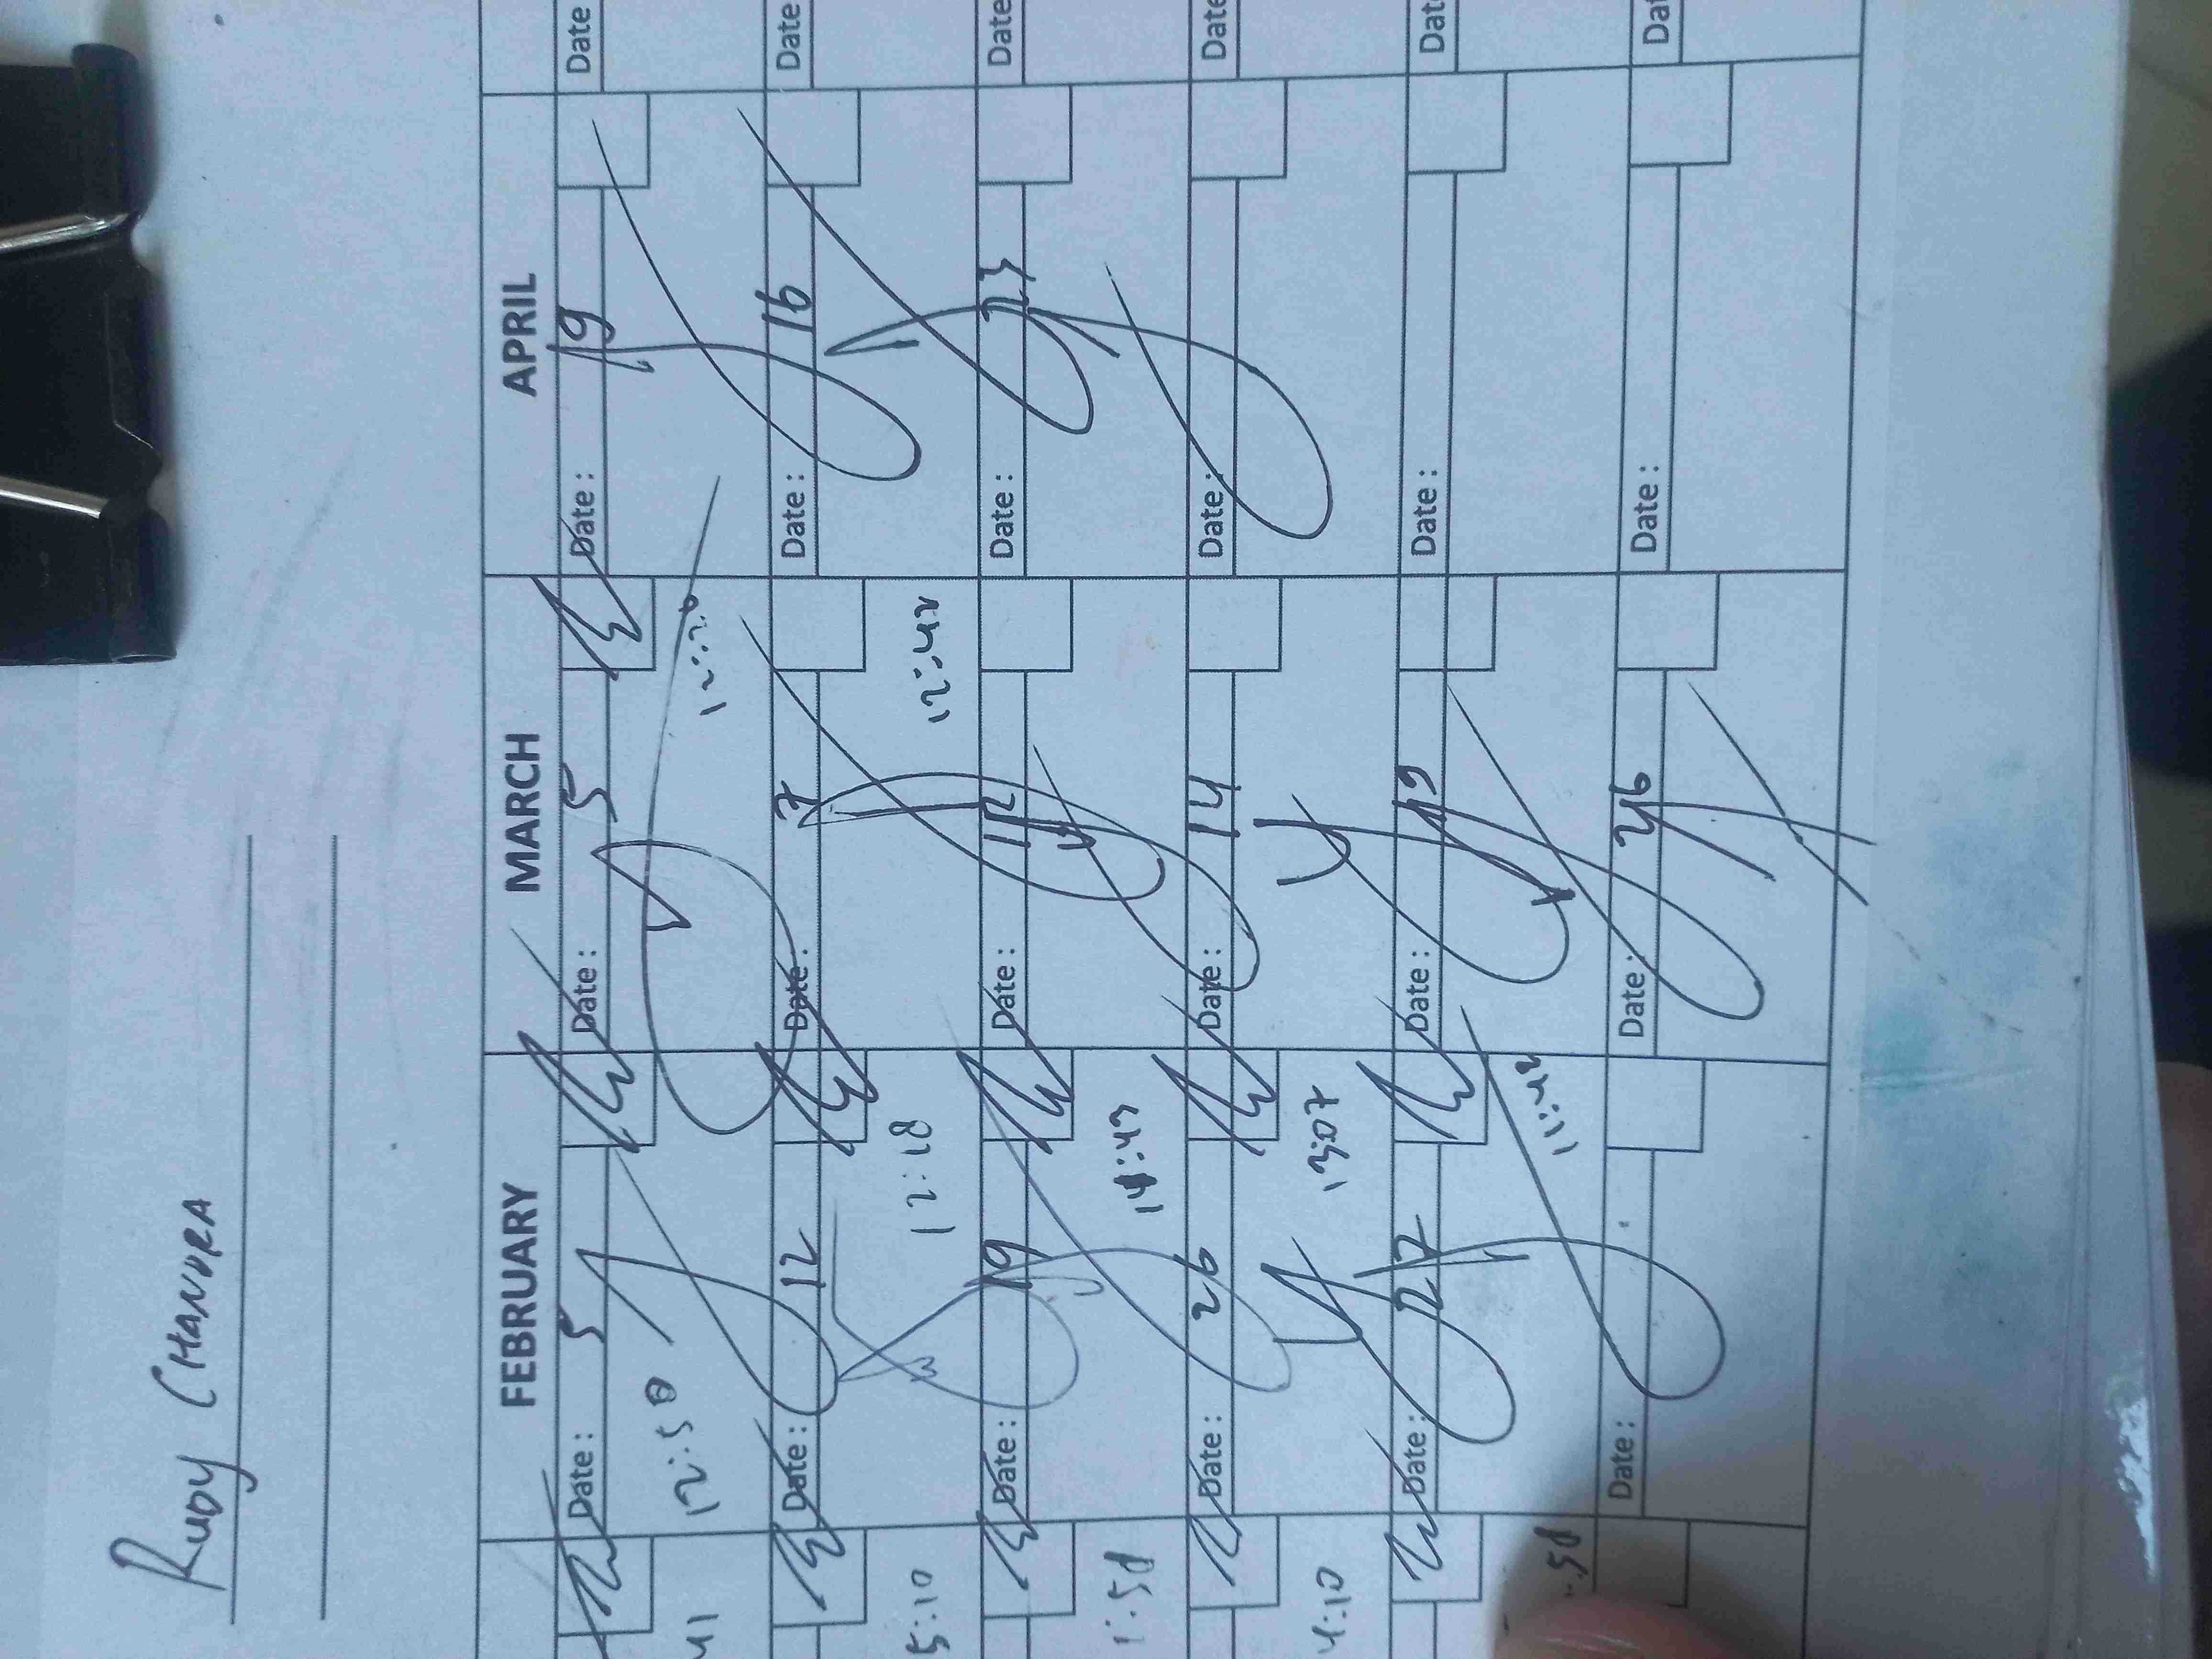 RUDY CHANDRA
FEBRUARY MARCH APRIL
Date : 5 Date : 5 Date : 9 Date
41 12:50
Date : 12 Date : 7 Date : 16 Date
5:10 12:18 12:42
Date : 19 Date : 12 Date : 23 Date
1:58 14:43
Date : 26 Date : 14 Date : Date
4:10 13:07
Date : 27 Date : 19 Date : Dat
:58 11:42
Date : Date : 26 Date : Dat